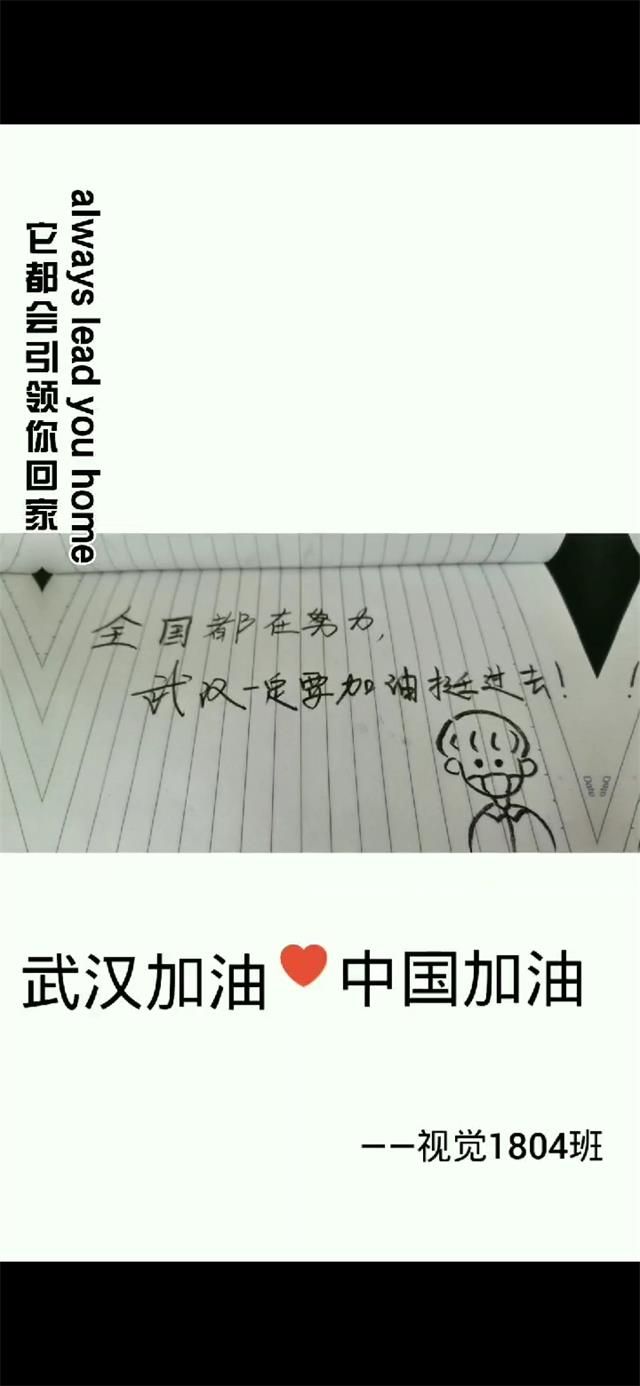 always lead you home
它都会引领你回家
全国都在努力,
武汉一定要加油挺过去! !
Date
武汉加油❤中国加油
——视觉1804班